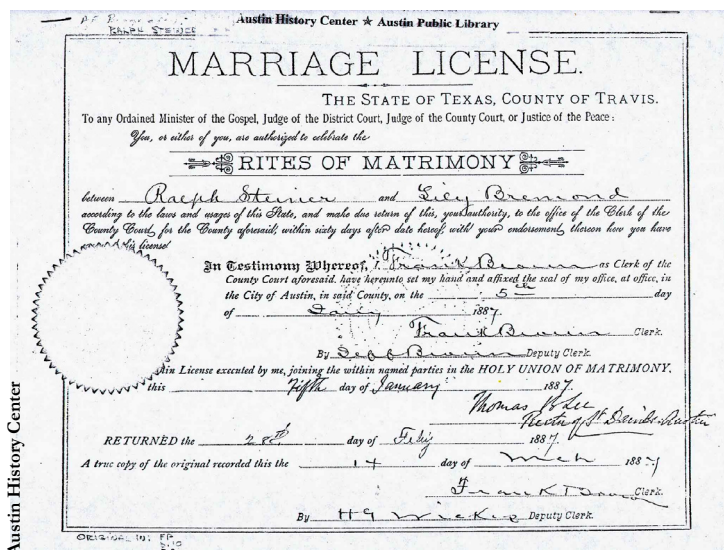 Austin History Center ★ Austin Public Library
RALPH STEINER
MARRIAGE LICENSE.
THE STATE OF TEXAS, COUNTY OF TRAVIS.
To any Ordained Minister of the Gospel, Judge of the District Court, Judge of the County Court, or Justice of the Peace:
You, or either of you, are authorized to celebrate the
RITES OF MATRIMONY
between Ralph Steiner and Lily Bremond
according to the laws and usages of this State, and make due return of this, your authority, to the office of the Clerk of the
County Court, for the County aforesaid, within sixty days after date hereof, with your endorsement thereon how you have
this license
In Testimony Whereof, I Frank Brown as Clerk of the
County Court aforesaid, have hereunto set my hand and affixed the seal of my office, at office, in
the City of Austin, in said County, on the 5th day
of 1887
Frank Brown Clerk.
By Brown Deputy Clerk.
in License executed by me, joining the within named parties in the HOLY UNION OF MATRIMONY,
this Fifth day of January 1887.
Thomas B Lee
Rector of St Davids Austin
RETURNED the 28th day of Feby 1887
A true copy of the original recorded this the 14 day of Mch 1887
Frank Brown Clerk.
By H G Deputy Clerk.
ORIGINAL IN:
Austin History Center